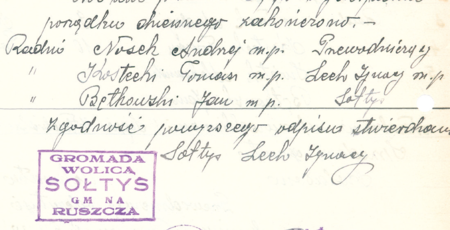 porządku dziennego zakończono. –
Radni Nosek Andrzej m.p. Przewodniczący
" Kostecki Tomasz m.p. Lech Ignacy m.p
" Bętkowski Jan m.p. Sołtys
Zgodność powyższego odpisu stwierdzam
Sołtys Lech Ignacy
GROMADA
WOLICA
SOŁTYS
GM NA
RUSZCZA